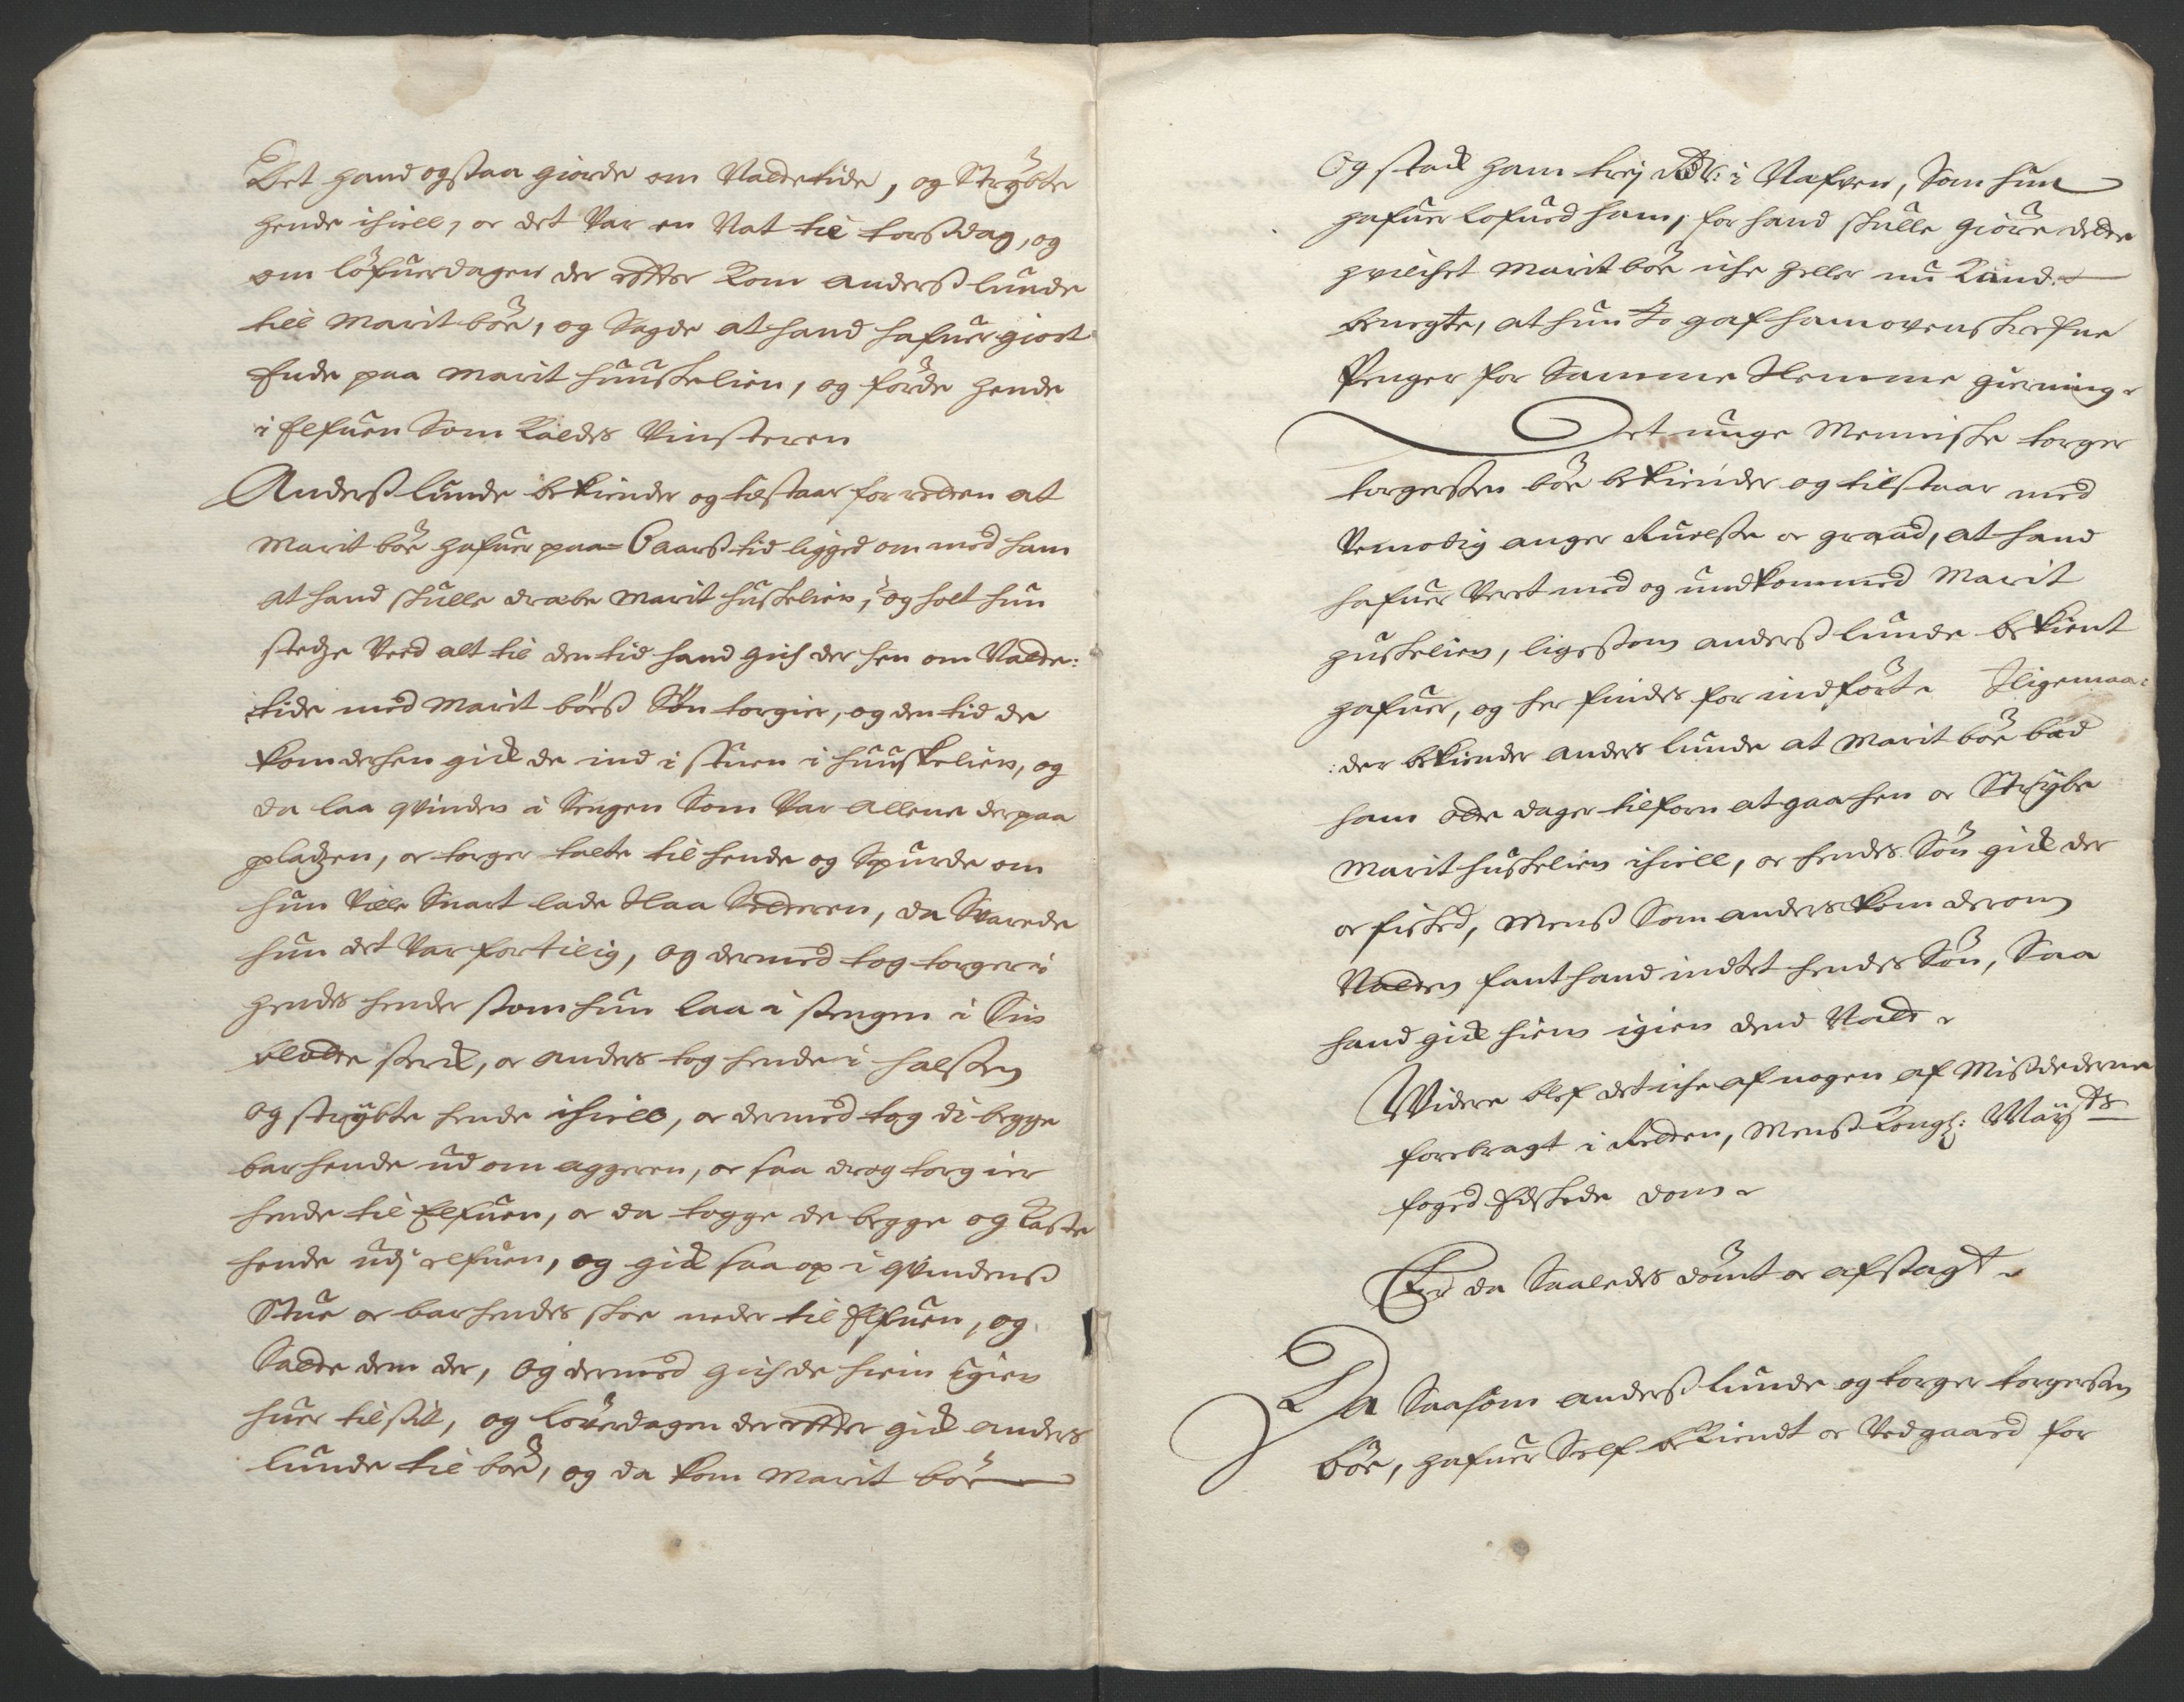 Det hand ogsaa giorde om Natte tide, og Strÿbte
hende ihiell, oc det Var en Nat til torssdag, og
om löfuerdagen der effter Kom Anderss lunde
till Marit böe, og Sagde at hand hafuer giort
Ende paa Marit huuskelien, og förde hende
i Elfuen Som Kaldes Vinsteren
Anderss lunde bekiender og tilstaar for retten at
Marit böe hafuer paa 6 aarss tid ligged om med ham
at hand skulle dræbe Marit huskelien, og holt hun
stedze Ved alt til den tid hand gich der hen om Natte:
tide med Marit böess Sön torgier, og den tid de
kom der hen gick de ind i stuen i huuskelien, og
da laa qvinden i Sengen Som Var allene der paa
pladzen, oc torger talte til hende og Spurde om
hun Ville Snart lade Slaa Sætteren, da Svarede
hun det Var for tilig, og dermed tog torger i
hendes hender som hun laa i sengen i Sin
blotte serck, oc anders tog hende i halssen
og strÿbte hende ihiell, oc dermed tog di begge
bar hende ud om aggeren, oc saa drog torgier
hende til Elfuen, oc da togge de begge og Kaste
hende udj elfuen, og gick saa op i qvindenss
Stue oc bar hendes skoe neder til Elfuen, og
Satte dem der, og dermed gich de hiem igien
huer til sit, og Löuerdagen der effter gick anders
lunde til böe, og da kom Marit böe
Og stack ham trej Rdr: i Nefven, Som hun
hafuer lofued ham, for hand skulle giöre dette
hvilchet Marit böe iche heller nu Kand
benegte, at hun Jo gaf ham ovenskrefne
Penger for Samme Slemme gierning
Det unge Menniske torger
torgersen böe bekiender og tilstaar med
Vemodig anger Ruelse oc graad, at hand
hafuer Veret med og undkommed Marit
huskelien, ligesom anderss lunde bekient
hafuer, og her findes for indfört. Iligemaa:
:der bekiender anders lunde at Marit böe bad
ham otte dager tilforn at gaa hen oc Strÿbe
Marit huskelien ihiell, oc hendes Sön gick der
oc fisked, Menss Som anders kom der om
Natten fant hand indtet hendes Sön, Saa
hand gick hiem igien dend Natt
Widere blef det iche af nogen af Missdederne
forebragt i Retten, Menss Kongl: Maÿtts
foged Eskede dom
Er da Saaledes dömt oc afsagt
Da Saasom anderss lunde og torger torgersen
böe, hafuer Self bekiendt oc Vedgaaed for